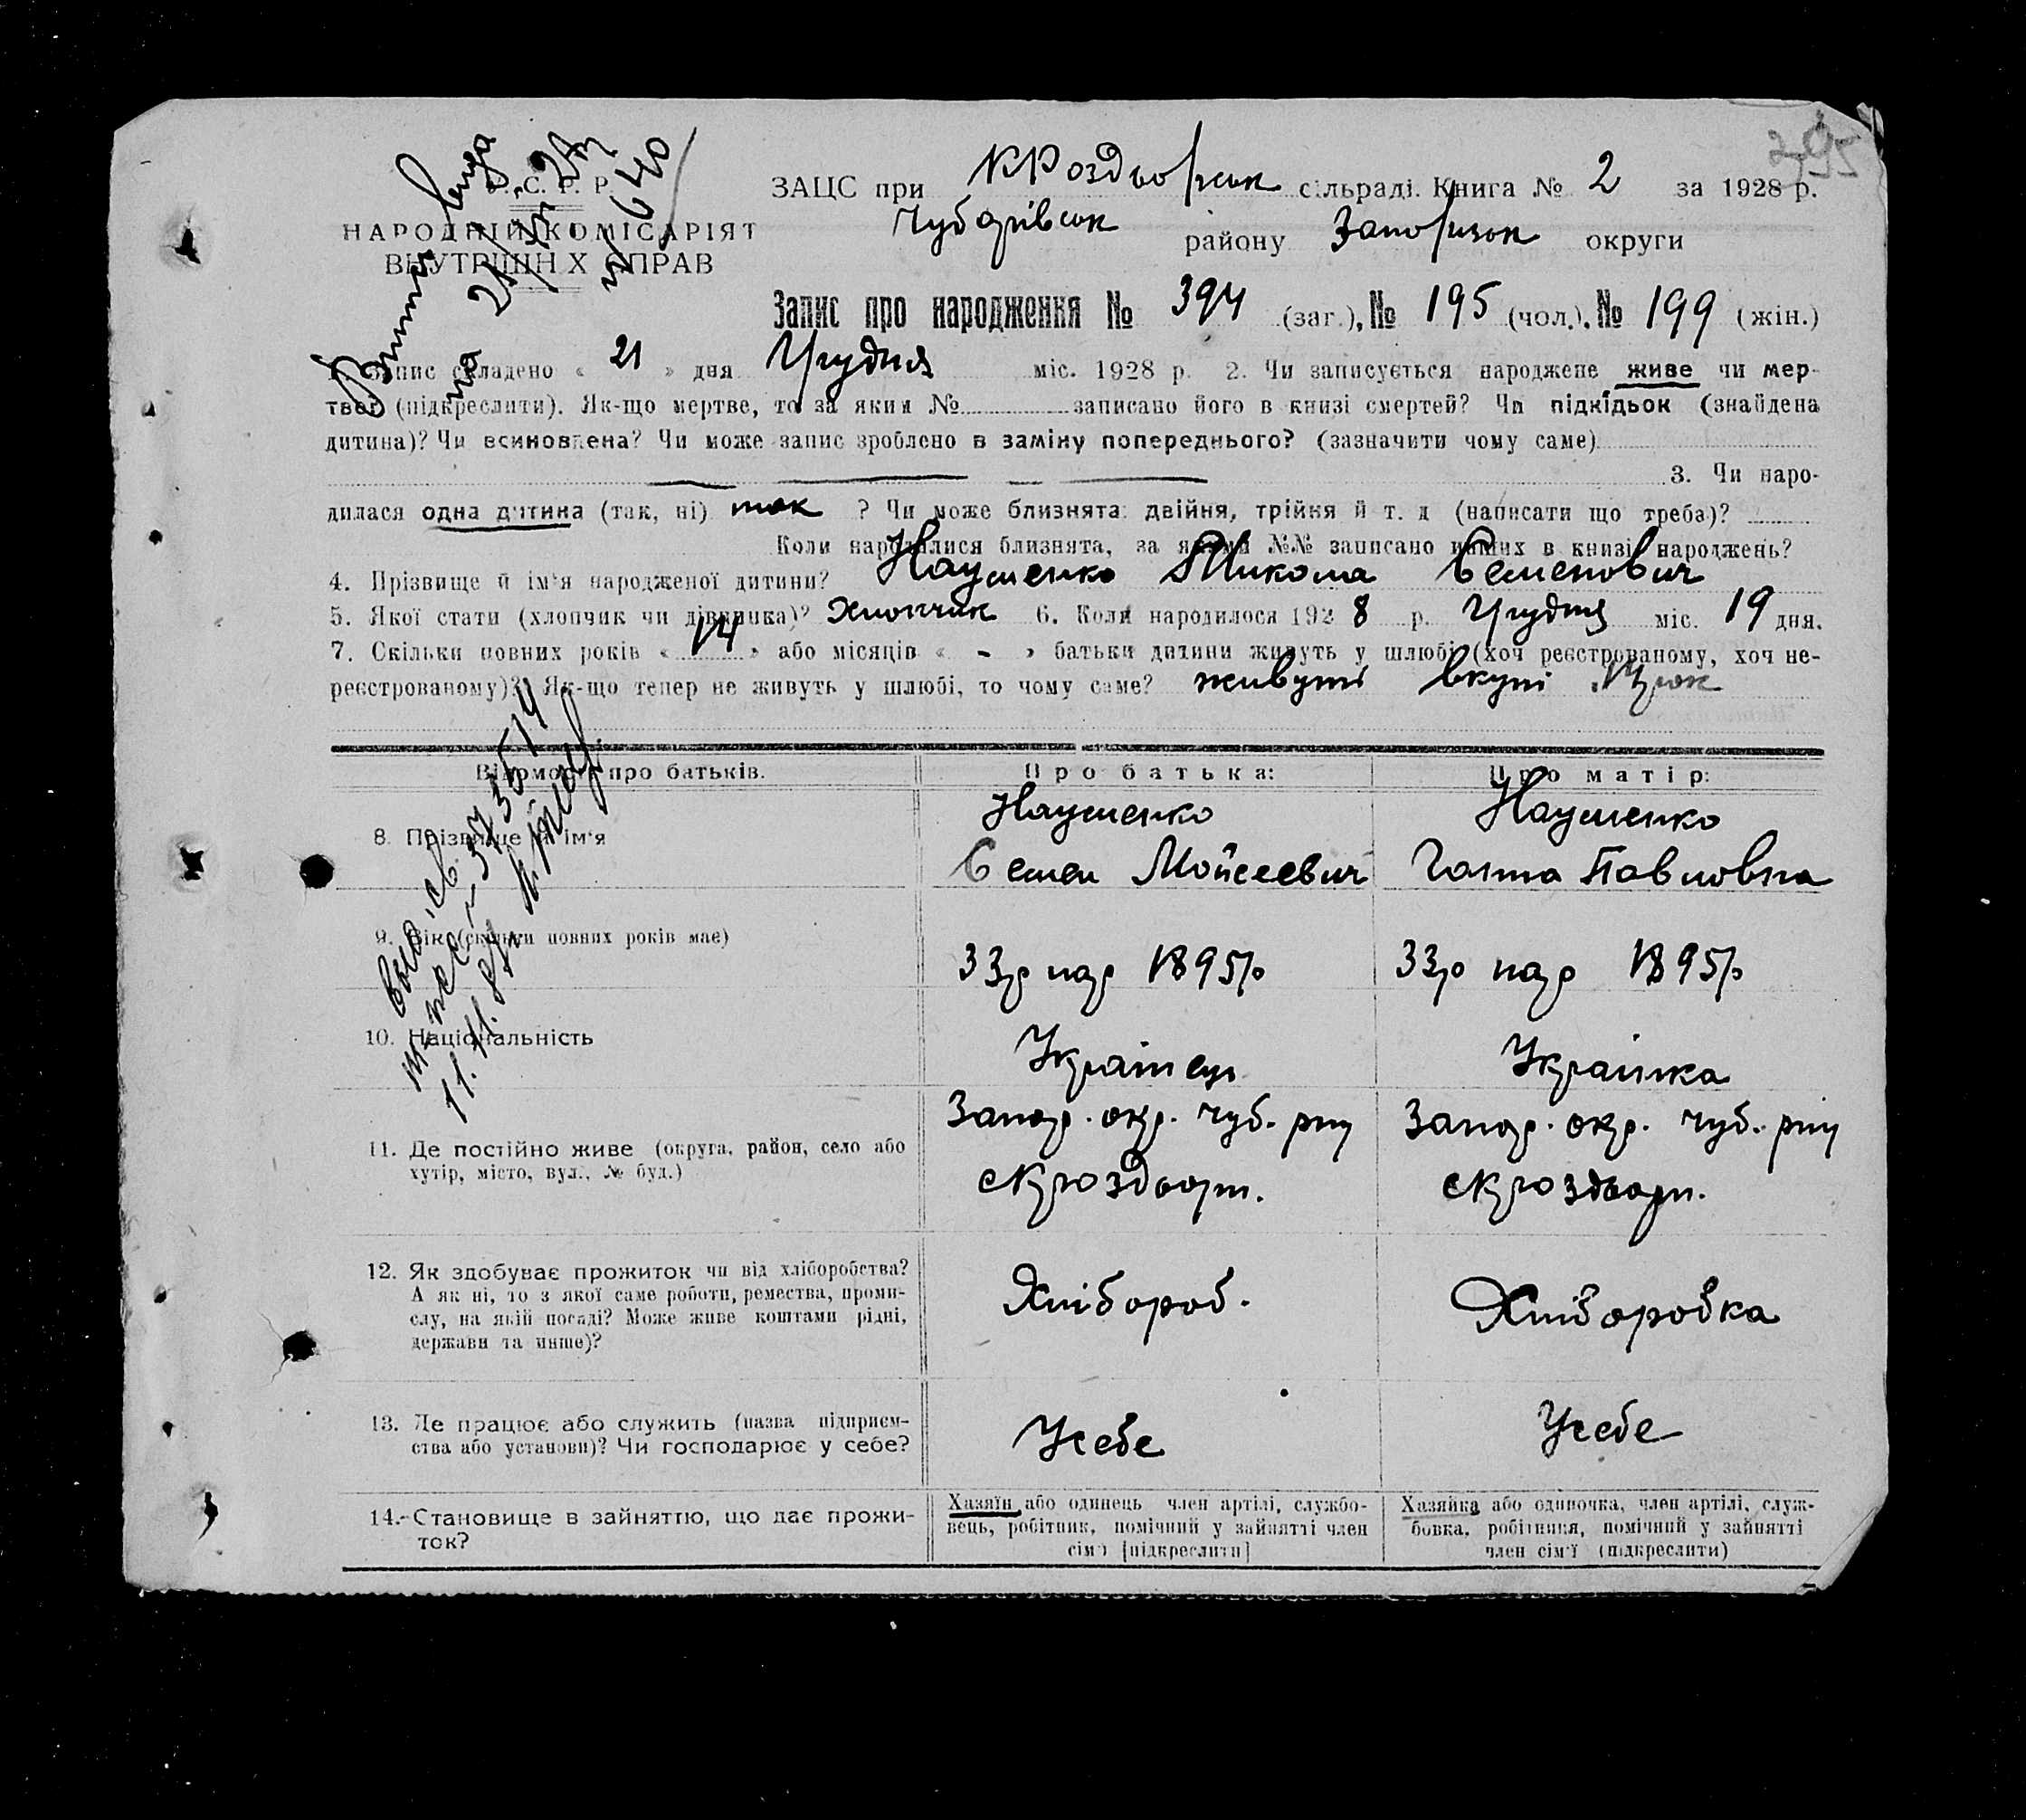 395
У. С. Р. Р.
НАРОДНІЙ КОМІСАРІЯТ
ВНУТРІШН Х СПРАВ
ЗАЦС при КРоздорськ сільраді. Книга № 2 за 1928 р.
Чубарівськ району Запоризьк округи
Запис про народження № 394 (заг.), № 195 (чол.). № 199 (жін.)
1. Запис складено « 21 » дня Грудня міс. 1928 р. 2. Чи записується народжене живе чи мер-
тве (підкреслити). Як-що мертве, то за яким № записано його в книзі смертей? Чи підкідьок (знайдена
дитина)? Чи всиновлена? Чи може запис зроблено в заміну попереднього? (зазначити чому саме)
3. Чи наро-
дилася одна дитина (так, ні) так ? Чи може близнята: двійня, трійня й т. д (написати що треба)?
Коли народилися близнята, за якими №№ записано инших в книзі народжень?
4. Прізвище й ім'я народженої дитини? Науменко Микола Семенович
5. Якої стати (хлопчик чи дівчинка)? Хлопчик 6. Коли народилося 1928 р. Грудня міс. 19 дня.
7. Скільки повних років « 14 » або місяців « - » батьки дитини живуть у шлюбі (хоч реєстрованому, хоч не-
реєстрованому)? Як-що тепер не живуть у шлюбі, то чому саме? живуть вкупі
Відомості про батьків. Про батька: Про матір:
8. Прізвище й ім'я
Науменко
Семен Мойсеевич
Науменко
Ганна Павловна
9. Вік (скільки повних років має)
33р нар 1895р
33р нар 1895р
10. Національність
Українец
Українка
11. Де постійно живе (округа, район, село або
хутір, місто, вул., № буд.)
Запор. окр. чуб. рну
скроздорн.
Запор. окр. чуб. рну
скроздорн.
12. Як здобуває прожиток чи від хліборобства?
А як ні, то з якої саме роботи, ремества, проми-
слу, на якій посаді? Може живе коштами рідні,
держави та инше)?
Хлібороб.
Хліборобка
13. Де працює або служить (назва підприєм-
ства або установи)? Чи господарює у себе?
Усебе
Усебе
14.-Становище в зайняттю, що дає прожи-
ток?
Хазяїн або одинець член артілі, службо-
вець, робітник, помічний у зайнятті член
сім'ї [підкреслити]
Хазяйка або одиночка, член артілі, служ-
бовка, робітниця, помічний у зайнятті
член сім'ї (підкреслити)